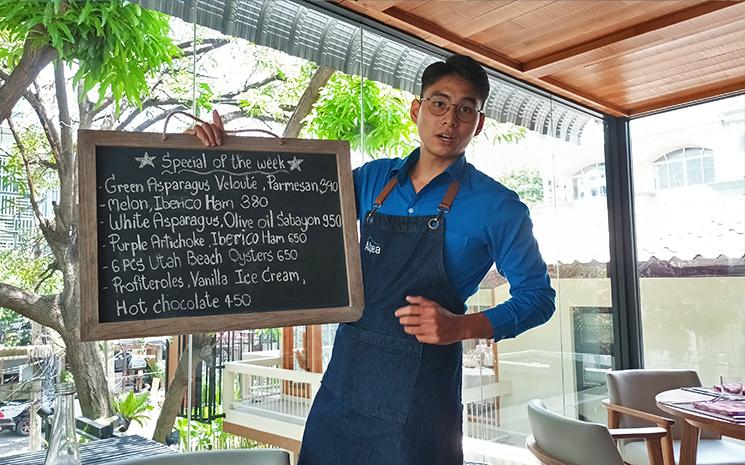 Special of the week
- Green Asparagus Velouté, Parmesan 390
- Melon, Iberico Ham 380
White Asparagus, Olive oil Sabayon 950
- Purple Artichoke Iberico Ham 650
- 6 Pcs Utah Beach Oysters 650
- Profiteroles, Vanilla Ice Cream,
Hot chocolate 450